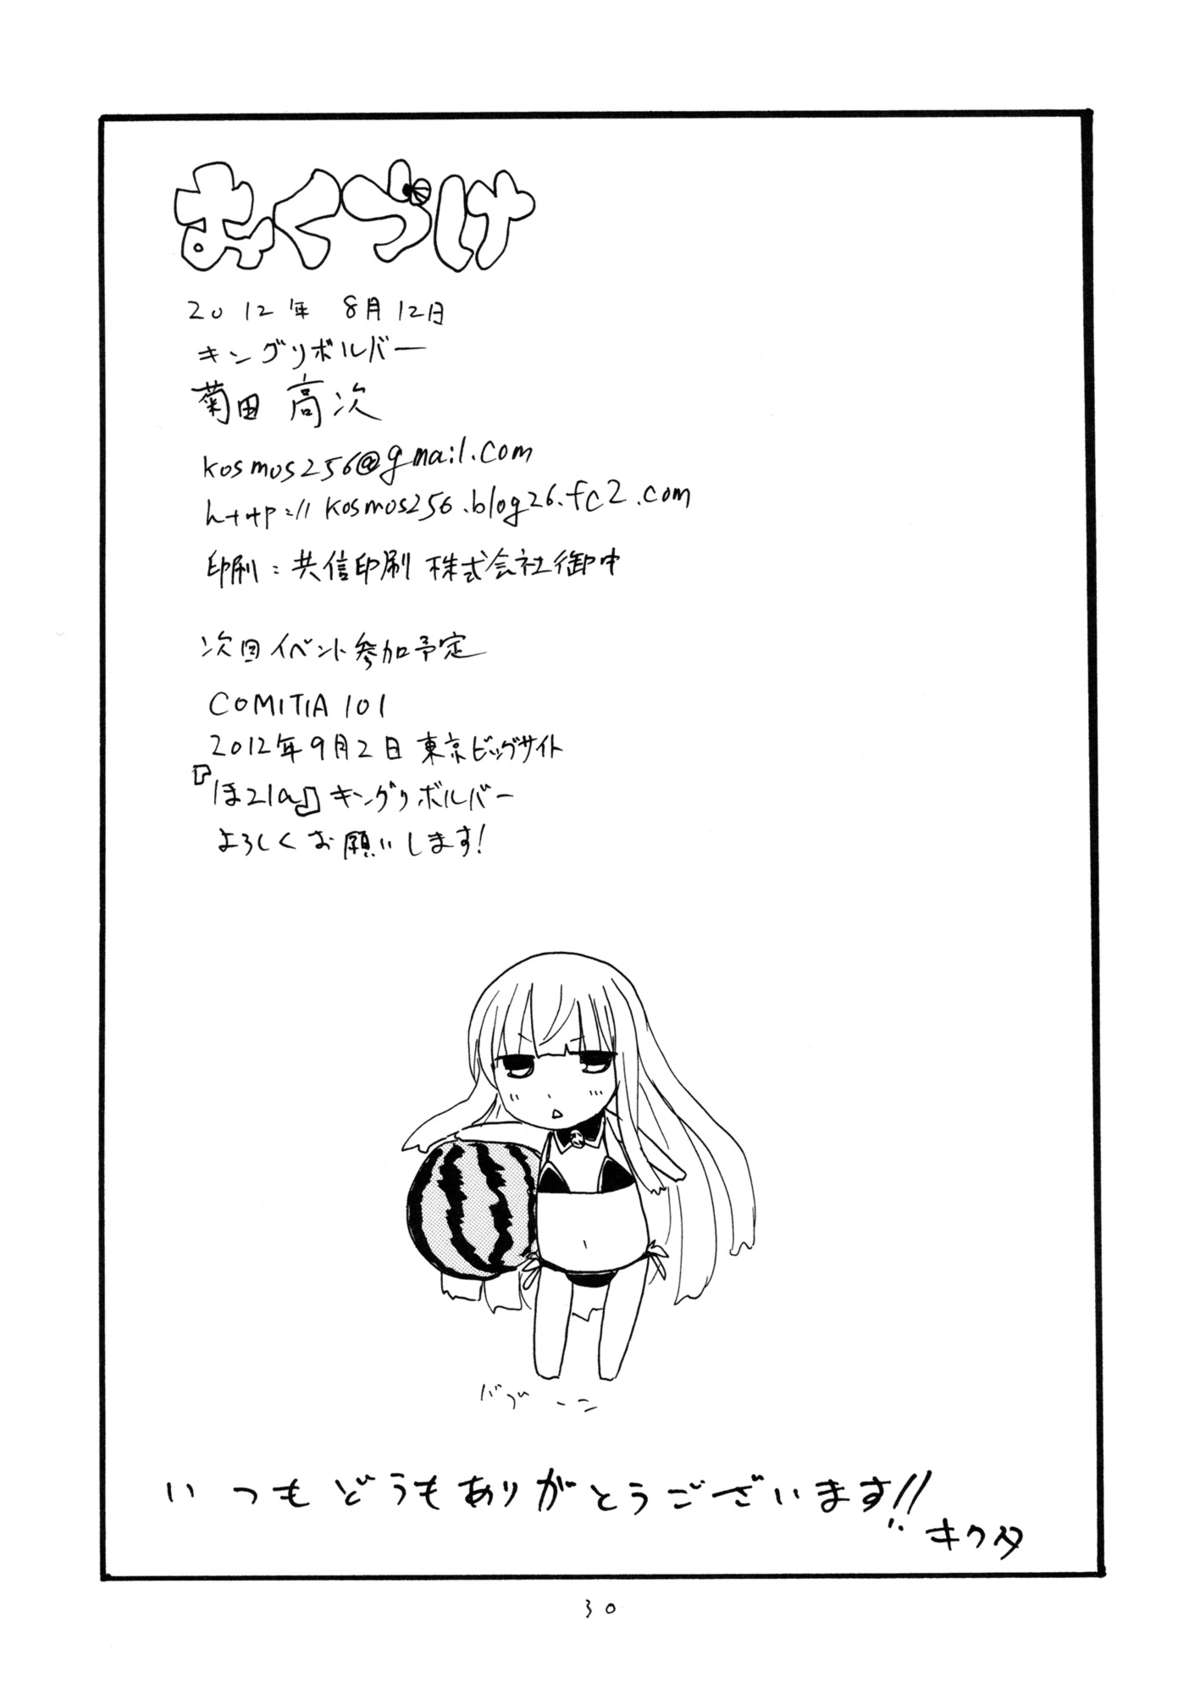 おくづけ
2012年 8月12日
キングリボルバー
菊田 高次
kosmos256@gmail.com
http://kosmos256.blog26.fc2.com
印刷:共信印刷 株式会社御中
次回イベント参加予定
COMITIA 101
2012年9月2日 東京ビッグサイト
『ほ21a』キングリボルバー
よろしくお願いします!
バブーン
いつもどうもありがとうございます!!
キクタ
30